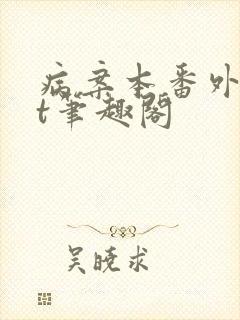 病案本番外
t笔趣阁
吴晓求